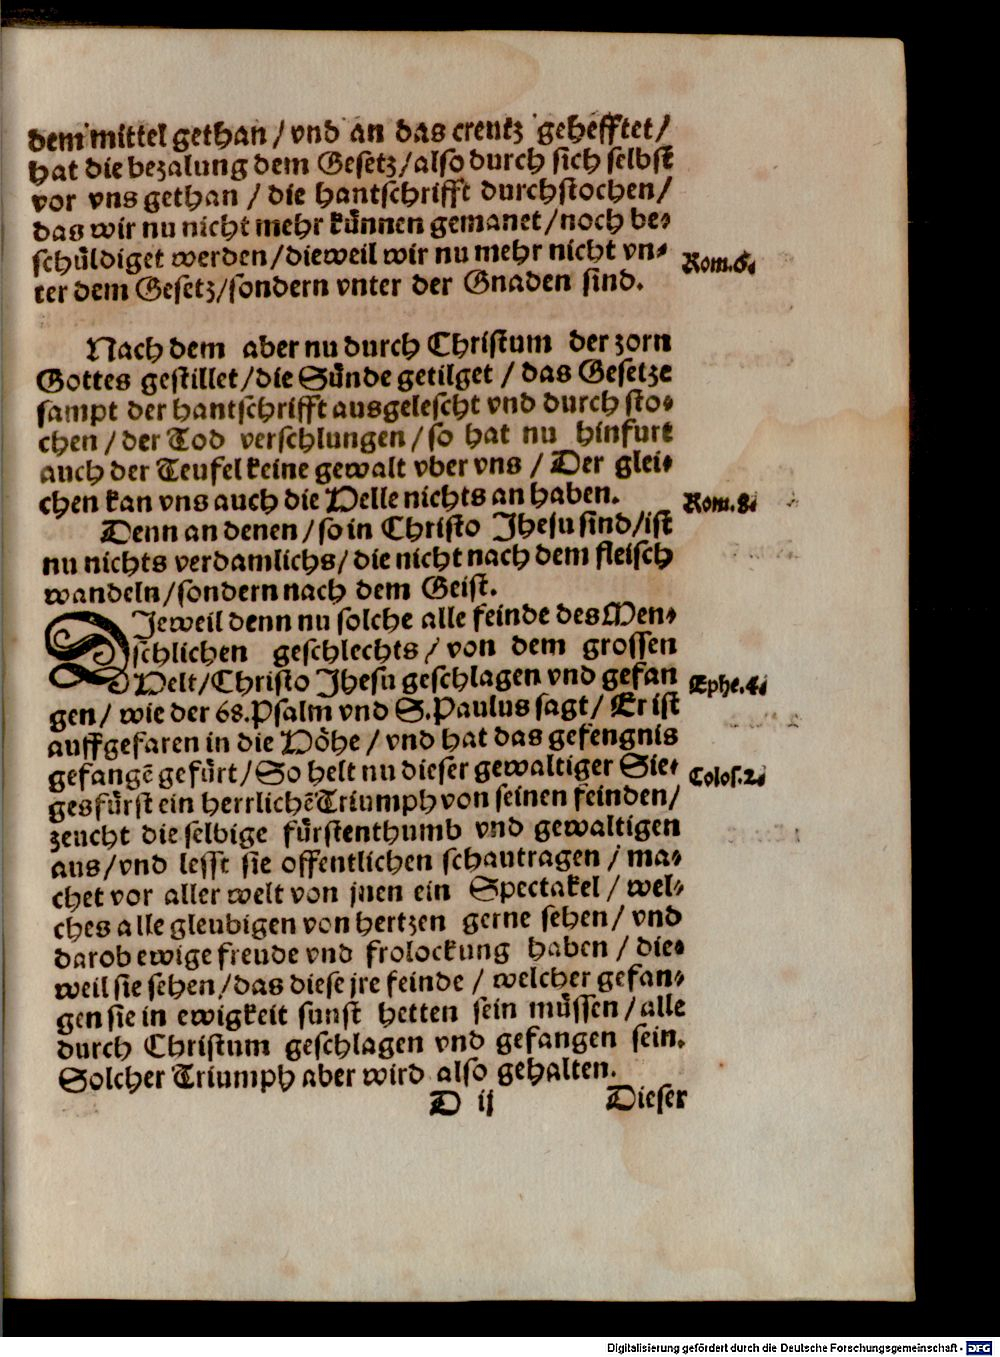 dem mittel gethan / vnd an das creutz gehefftet /
hat die bezalung dem Gesetz / also durch sich selbst
vor vns gethan / die hantschrifft durchstochen /
das wir nu nicht mehr künnen gemanet / noch be⸗
schüldiget werden / dieweil wir nu mehr nicht vn⸗
Rom. 6.
ter dem Gesetz / sondern vnter der Gnaden sind.
Nach dem aber nu durch Christum der zorn
Gottes gestillet / die Sünde getilget / das Gesetze
sampt der hantschrifft ausgelescht vnd durch sto⸗
chen / der Tod verschlungen / so hat nu hinfurt
auch der Teufel keine gewalt vber vns / Der glei⸗
chen kan vns auch die Helle nichts an haben.
Rom. 8.
Denn an denen / so in Christo Jhesu sind / ist
nu nichts verdamlichs / die nicht nach dem fleisch
wandeln / sondern nach dem Geist.
DJeweil denn nu solche alle feinde des Men⸗
schlichen geschlechts / von dem grossen
Helt / Christo Jhesu geschlagen vnd gefan
Ephe. 4.
gen / wie der 68. Psalm vnd S. Paulus sagt / Er ist
auffgefaren in die Höhe / vnd hat das gefengnis
gefangē gefürt / So helt nu dieser gewaltiger Sie⸗
Colos. 2.
gesfürst ein herrlichē Triumph von seinen feinden /
zeucht die selbige fürstenthumb vnd gewaltigen
aus / vnd lesst sie offentlichen schautragen / ma⸗
chet vor aller welt von jnen ein Spectakel / wel⸗
ches alle gleubigen von hertzen gerne sehen / vnd
darob ewige freude vnd frolockung haben / die⸗
weil sie sehen / das diese jre feinde / welcher gefan⸗
gen sie in ewigkeit sunst hetten sein müssen / alle
durch Christum geschlagen vnd gefangen sein.
Solcher Triumph aber wird also gehalten.
D ij Dieser
Digitalisierung gefördert durch die Deutsche Forschungsgemeinschaft - DFG